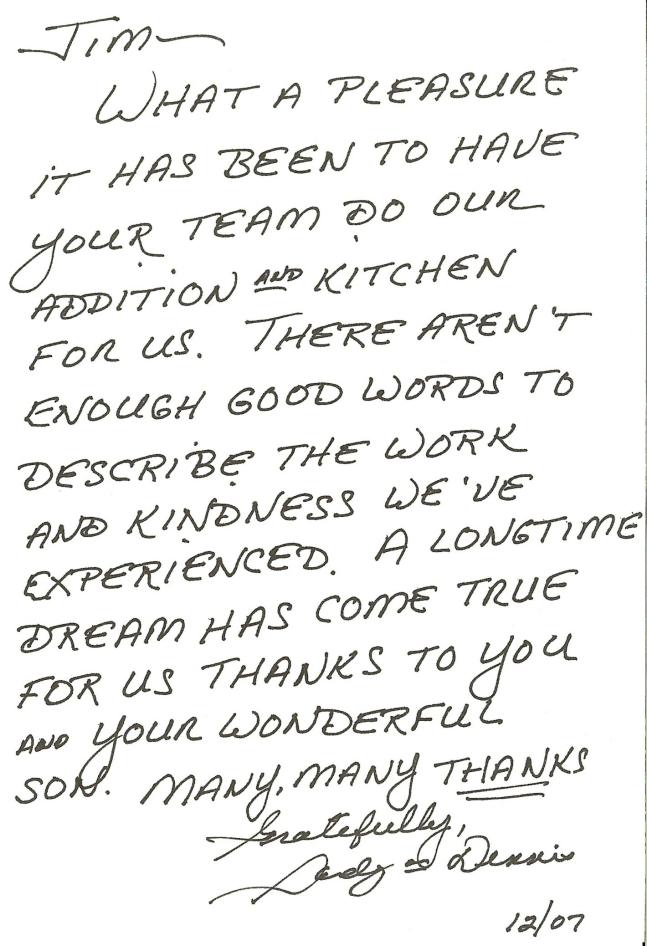 JIM—
WHAT A PLEASURE
IT HAS BEEN TO HAVE
YOUR TEAM DO OUR
ADDITION AND KITCHEN
FOR US. THERE AREN'T
ENOUGH GOOD WORDS TO
DESCRIBE THE WORK
AND KINDNESS WE'VE
EXPERIENCED. A LONGTIME
DREAM HAS COME TRUE
FOR US THANKS TO YOU
AND YOUR WONDERFUL
SON. MANY, MANY THANKS
Gratefully,
Dennis
12/07